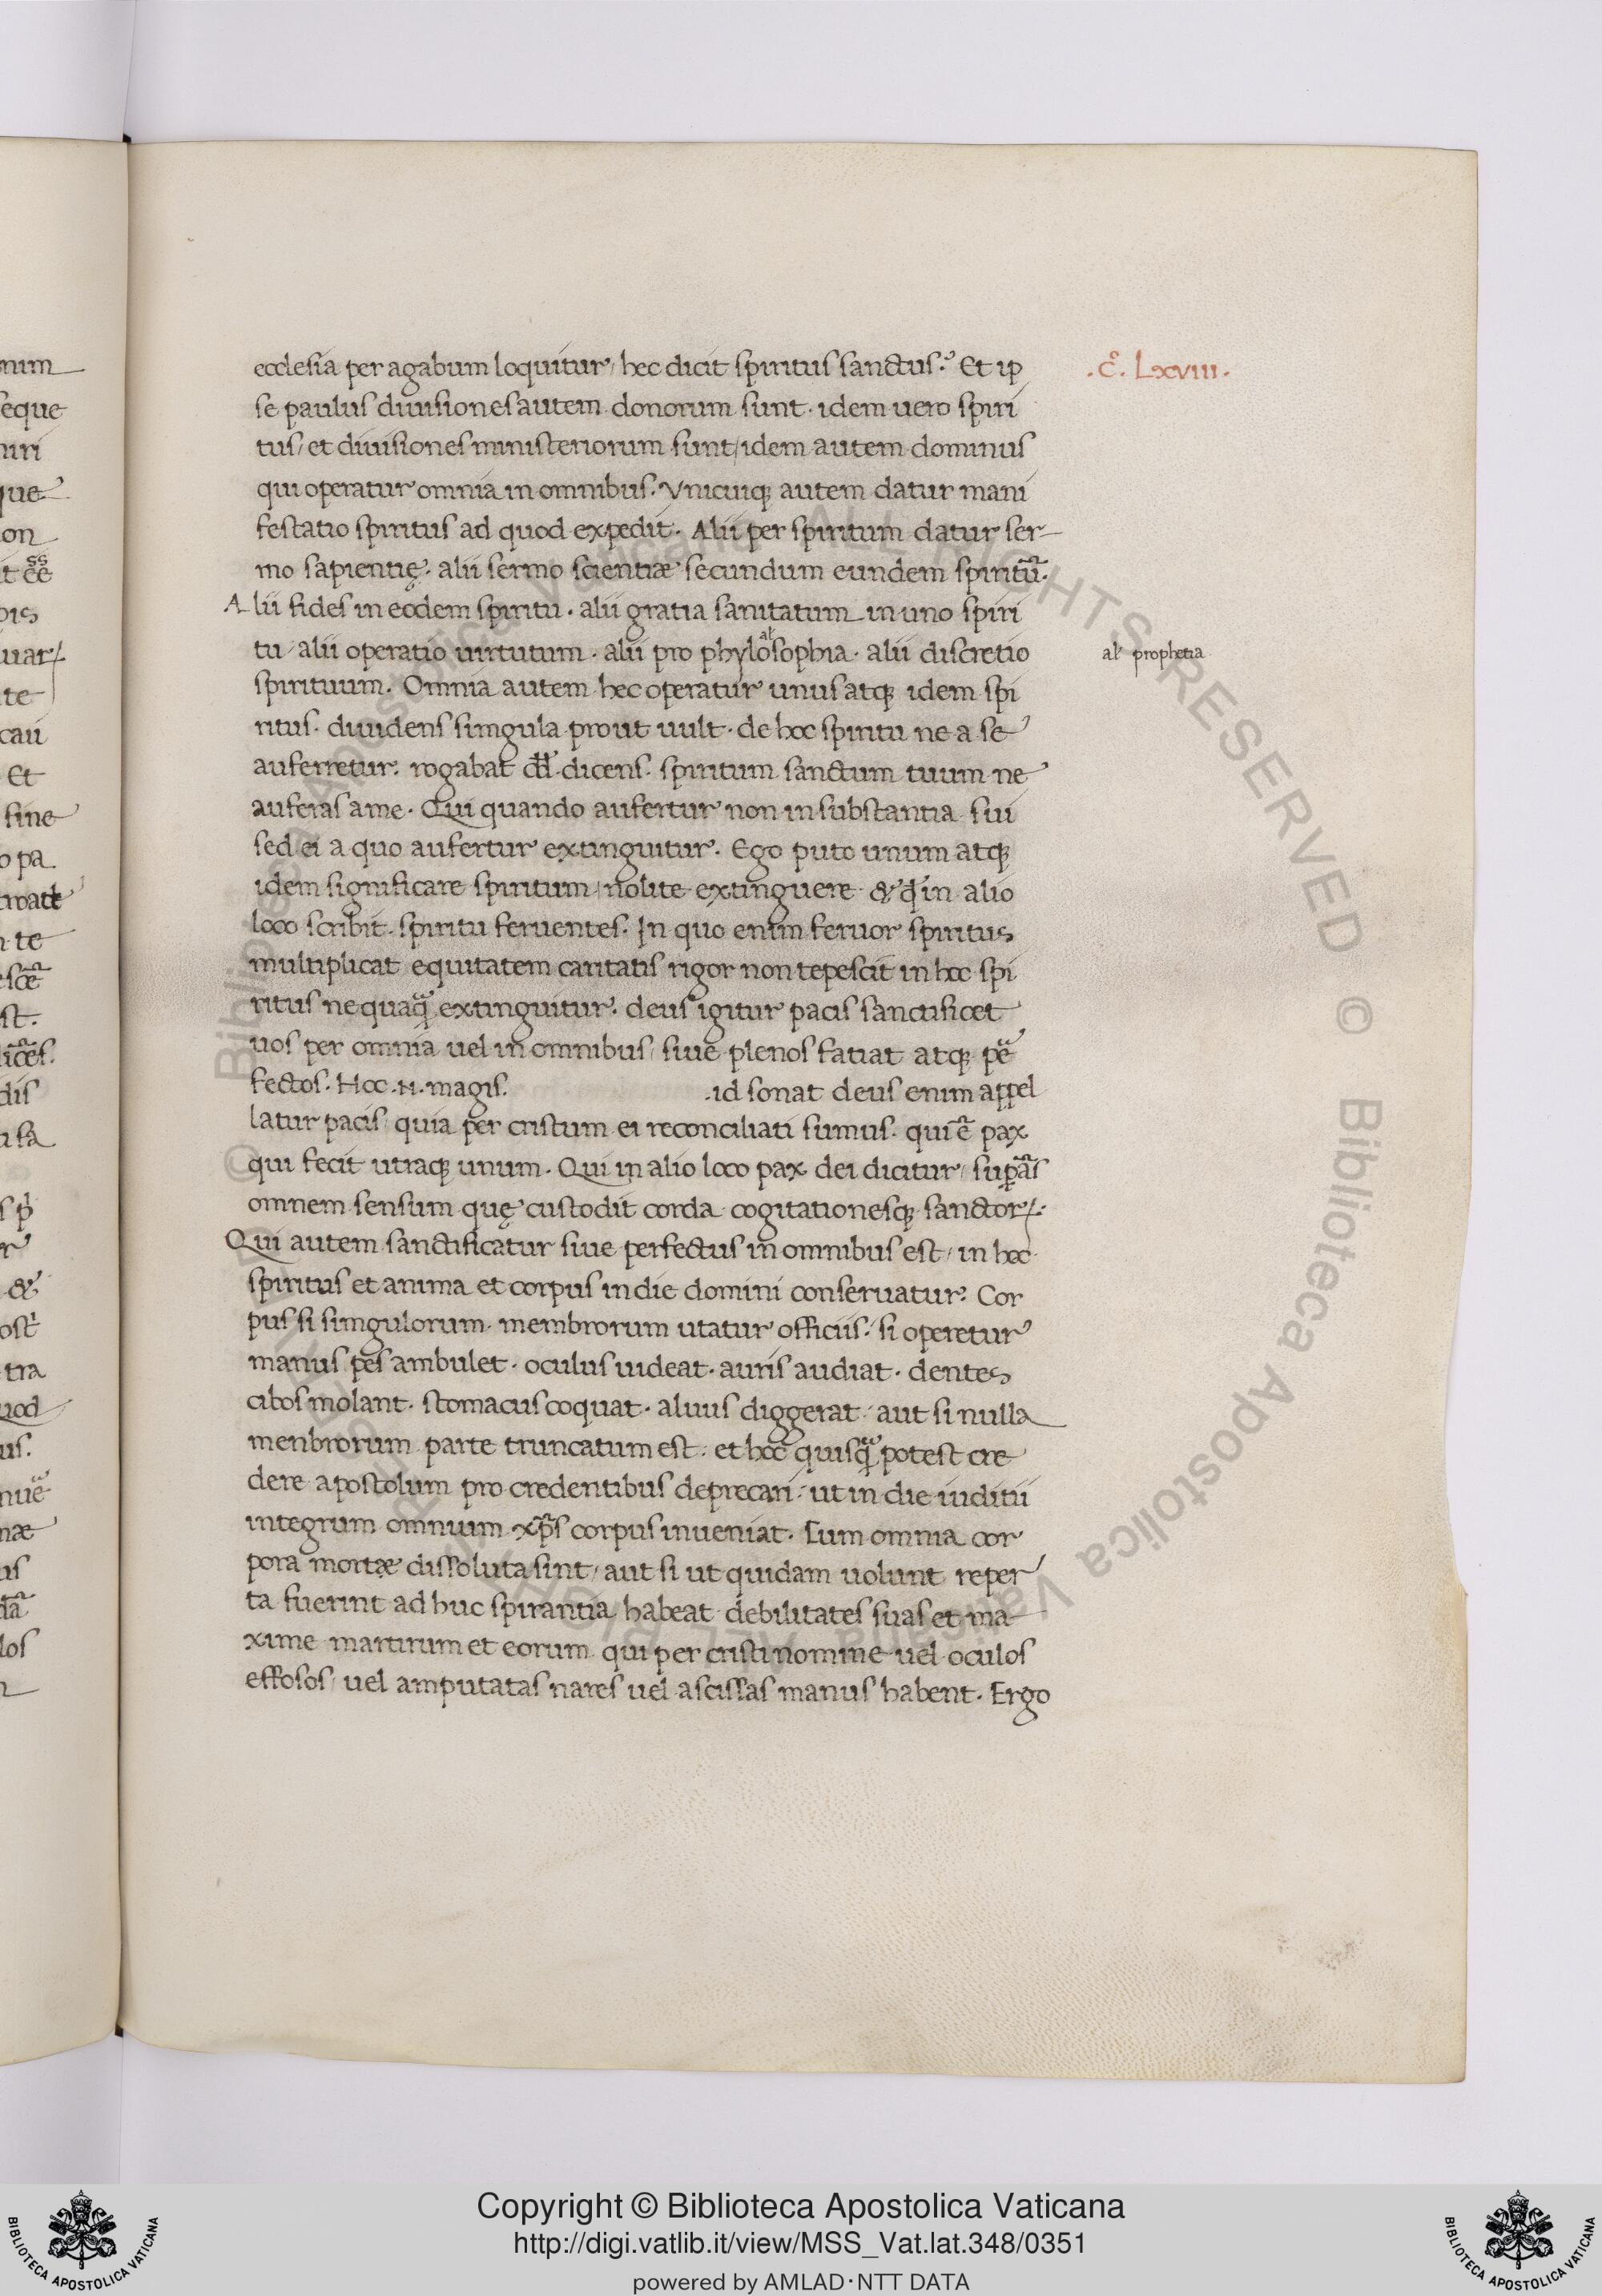 ecclesia per agabum loquitur / hec dicit spiritus sanctus. Et ip
.c. Lxviii.
se paulus diuisiones autem donorum sunt. idem uero spiri
tus / et diuisiones ministeriorum sunt / idem autem dominus
qui operatur omnia in omnibus. Vnicuiq; autem datur mani
festatio spiritus ad quod expedit. Alii per spiritum datur ser
mo sapientię. alii sermo scientiæ secundum eundem spiritū.
Alii fides in eodem spiritu. alii gratia sanitatum in uno spiri
tu / alii operatio uirtutum. alii pro phylosophia. alii discretio
al' prophetia
spirituum. Omnia autem hec operatur unus atq; idem spi
ritus. diuidens singula prout uult. de hoc spiritu ne a se
auferretur. rogabat dd. dicens. spiritum sanctum tuum ne
auferas a me. Qui quando aufertur non in substantia sui
sed ei a quo aufertur extinguitur. Ego puto unum atq;
idem significare spiritum / nolite extinguere & in alio
loco scribit. spiritu feruentes. In quo enim feruor spiritus
multiplicat equitatem caritatis rigor non tepescit in hoc spi
ritus nequaq̄ extinguitur. deus igitur pacis sanctificet
uos per omnia uel in omnibus / siue plenos fatiat atq; pē
fectos. Hoc .N. magis. .id sonat deus enim appel
latur pacis / quia per cristum ei reconciliati sumus. qui ē pax
qui fecit utraq; unum. Qui in alio loco pax dei dicitur / supās
omnem sensum quę custodit corda cogitationesq; sanctoꝝ.
Qui autem sanctificatur siue perfectus in omnibus est / in hoc
spiritus et anima et corpus in die domini conseruatur. Cor
pus si simgulorum membrorum utatur officiis. / si operetur
manus pes ambulet. oculus uideat. auris audiat. dentes
cibos molant. stomacus coquat. aluus diggerat / aut si nulla
menbrorum parte truncatum est. et hoc quisq̄ potest cre
dere apostolum pro credentibus deprecari / ut in die iuditii
integrum omnium xp̄s corpus inueniat. Cum omnia cor
pora mortæ dissoluta sint / aut si ut quidam uolunt reper
ta fuerint ad huc spirantia habeat debilitates suas et ma
xime martirum et eorum qui per cristi nomine uel oculos
effosos / uel amputatas nares uel ascissas manus habent. Ergo
Copyright © Biblioteca Apostolica Vaticana
http://digi.vatlib.it/view/MSS_Vat.lat.348/0351
powered by AMLAD·NTT DATA
BIBLIOTECA APOSTOLICA VATICANA
BIBLIOTECA APOSTOLICA VATICANA